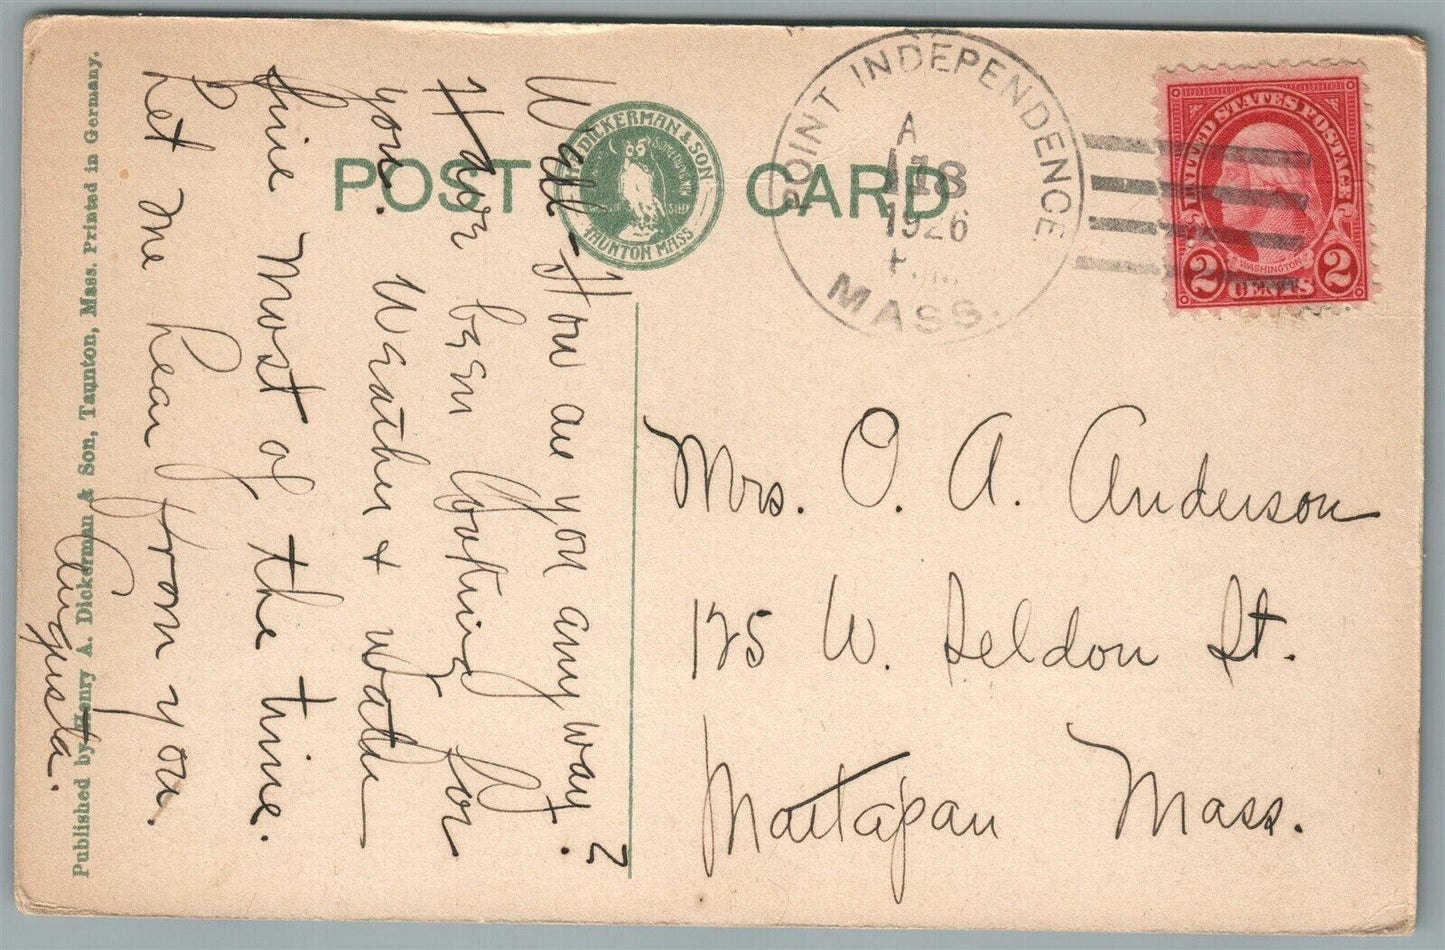 POST CARD
HENRY A. DICKERMAN & SON
TAUNTON MASS
POINT INDEPENDENCE
18
1926
MASS.
UNITED STATES POSTAGE
WASHINGTON
2 CENTS 2
Well - How are you any way?
Have been looking for
you. Weather & water
fine most of the time.
Let me hear from you.
Augusta.
Mrs. O. A. Anderson
125 W. Seldon St.
Mattapan Mass.
Published by Henry A. Dickerman & Son, Taunton, Mass. Printed in Germany.